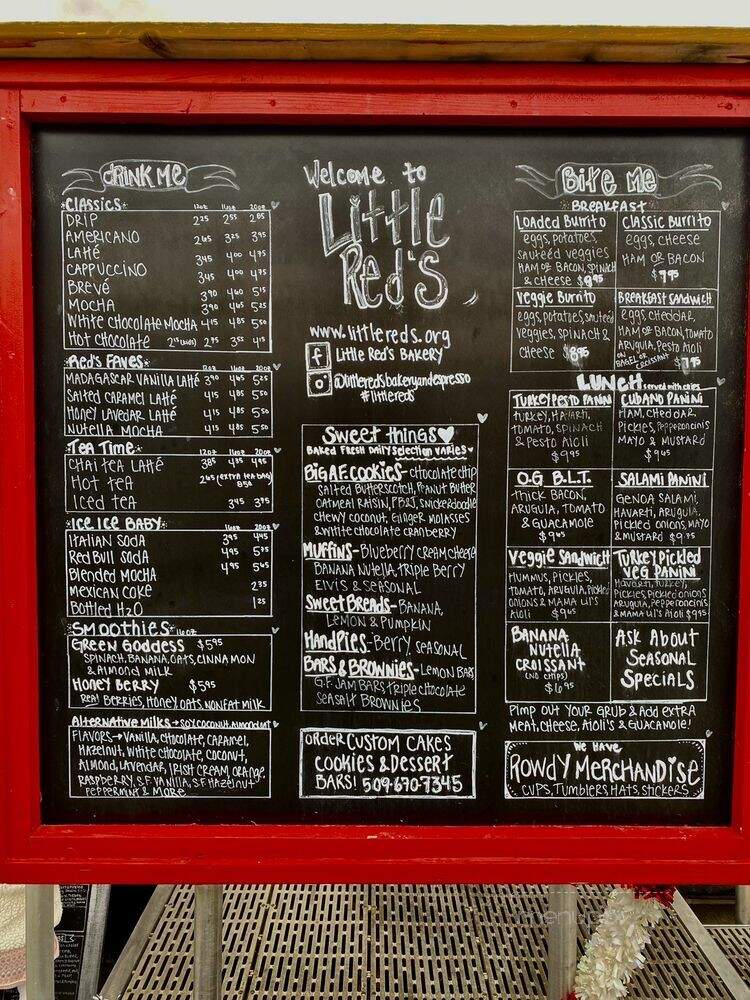 DRINK ME
CLASSICS 12oz 16oz 20oz
DRIP 2.25 2.55 2.85
AMERICANO 2.65 3.25 3.95
LATTÉ 3.45 4.00 4.75
CAPPUCCINO 3.45 4.00 4.75
BREVÉ 3.90 4.60 5.15
MOCHA 3.90 4.65 5.25
WHITE CHOCOLATE MOCHA 4.15 4.85 5.50
HOT CHOCOLATE 2.95 3.55 4.15
RED'S FAVES
MADAGASCAR VANILLA LATTÉ 3.90 4.65 5.25
SALTED CARAMEL LATTÉ 4.15 4.85 5.50
HONEY LAVEDAR LATTÉ 4.15 4.85 5.50
NUTELLA MOCHA 4.15 4.85 5.50
TEA TIME 12oz 16oz 20oz
CHAI TEA LATTÉ 3.85 4.35 4.95
HOT TEA 2.65 (EXTRA TEA BAG)
.85¢
ICED TEA 3.45 3.95
ICE ICE BABY 16oz 20oz
ITALIAN SODA 3.95 4.45
RED BULL SODA 4.95 5.75
BLENDED MOCHA 4.95 5.65
MEXICAN COKE 2.35
BOTTLED H2O 1.25
SMOOTHIES 16oz
GREEN GODDESS $5.95
SPINACH, BANANA, OATS, CINNAMON
& ALMOND MILK
HONEY BERRY $5.95
REAL BERRIES, HONEY, OATS, NONFAT MILK
ALTERNATIVE MILKS → SOY, COCONUT, ALMOND, OAT
FLAVORS → VANILLA, CHOCOLATE, CARAMEL,
HAZELNUT, WHITE CHOCOLATE, COCONUT,
ALMOND, LAVENDAR, IRISH CREAM, ORANGE,
RASPBERRY, S.F. VANILLA, S.F. HAZELNUT
PEPPERMINT & MORE
Welcome to
Little
Red's
www.littlereds.org
f LITTLE RED'S BAKERY
@littleredsbakeryandespresso
#littlereds
SWEET THINGS♥
BAKED FRESH DAILY SELECTION VARIES
BIG A.F. COOKIES - CHOCOLATE CHIP
SALTED BUTTERSCOTCH, PEANUT BUTTER
OATMEAL RAISIN, PB&J, SNICKERDOODLE
CHEWY COCONUT, GINGER MOLASSES
& WHITE CHOCOLATE CRANBERRY
MUFFINS - BLUEBERRY CREAM CHEESE
BANANA NUTELLA, TRIPLE BERRY
ELVIS & SEASONAL
SWEET BREADS - BANANA,
LEMON & PUMPKIN
HAND PIES - BERRY, SEASONAL
BARS & BROWNIES - LEMON BARS
G.F. JAM BARS TRIPLE CHOCOLATE
SEASALT BROWNIES
ORDER CUSTOM CAKES
COOKIES & DESSERT
BARS! 509·670·7345
BITE ME
BREAKFAST
LOADED BURRITO
EGGS, POTATOES,
SAUTEED VEGGIES
HAM OR BACON, SPINACH
& CHEESE $9.95
CLASSIC BURRITO
EGGS, CHEESE
HAM OR BACON
$7.95
VEGGIE BURRITO
EGGS, POTATOES, SAUTEED
VEGGIES, SPINACH &
CHEESE $8.75
BREAKFAST SANDWICH
EGGS, CHEDDAR,
HAM OR BACON, TOMATO
ARUGULA, PESTO AIOLI
ON BAGEL OR CROISSANT $7.95
LUNCH SERVED WITH CHIPS
TURKEY PESTO PANINI
TURKEY, HAVARTI,
TOMATO, SPINACH
& PESTO AIOLI
$9.95
CUBANO PANINI
HAM, CHEDDAR,
PICKLES, PEPPERONCINIS
MAYO & MUSTARD
$9.65
O.G. B.L.T.
THICK BACON,
ARUGULA, TOMATO
& GUACAMOLE
$9.45
SALAMI PANINI
GENOA SALAMI,
HAVARTI, ARUGULA,
PICKLED ONIONS, MAYO
& MUSTARD $9.75
VEGGIE SANDWICH
HUMMUS, PICKLES,
TOMATO, ARUGULA, PICKLED
ONIONS & MAMA LIL'S
AIOLI $9.65
TURKEY PICKLED
VEG PANINI
HAVARTI, TURKEY,
PICKLES, PICKLED ONIONS
ARUGULA, PEPPERONCINIS
& MAMA LIL'S AIOLI $9.95
BANANA
NUTELLA
CROISSANT
(NO CHIPS)
$6.95
ASK ABOUT
SEASONAL
SPECIALS
PIMP OUT YOUR GRUB & ADD EXTRA
MEAT, CHEESE, AIOLI'S & GUACAMOLE!
WE HAVE
ROWDY MERCHANDISE
CUPS, TUMBLERS, HATS, STICKERS